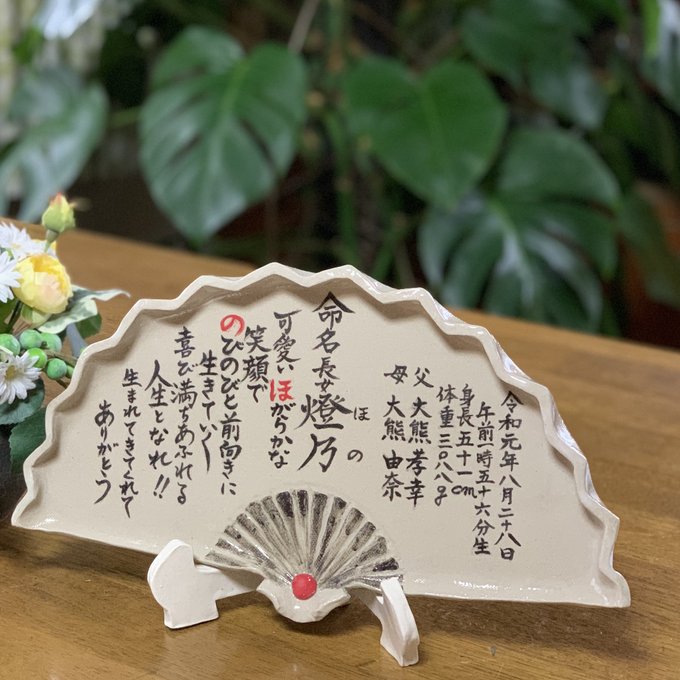 令和元年八月二十八日
午前一時五十六分生
身長五十一cm
体重三〇八八g
父 大熊孝幸
母 大熊由奈
命名長女燈乃
ほの
可愛いほがらかな
笑顔で
のびのびと前向きに
生きていく
喜び満ちあふれる
人生となれ!!
生まれてきてくれて
ありがとう